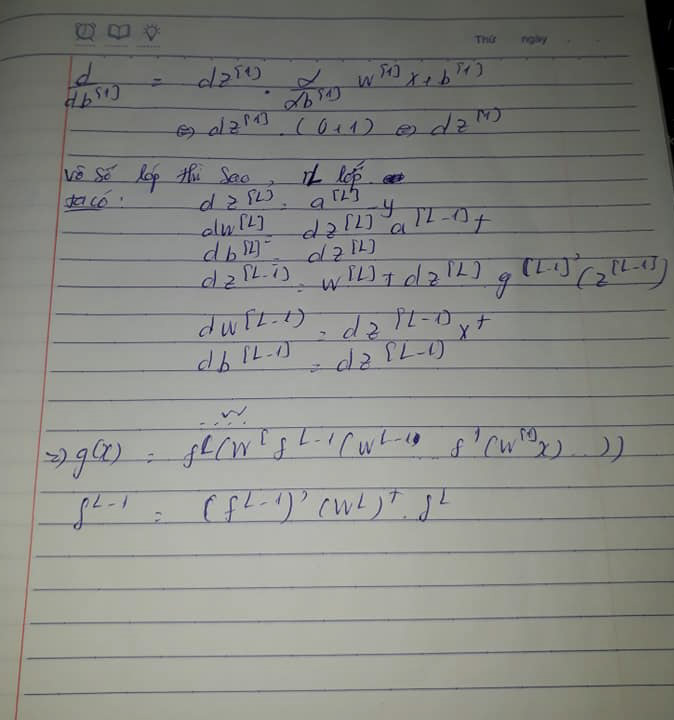 Thứ ngày
d/db^[1] = dz^[1] . d/db^[1] w^[1] x + b^[1]
⇔ dz^[1] . (0+1) ⇔ dz^[1]
Vô số lớp thì sao, L lớp
ta có: dz^[L] = a^[L] - y
dw^[L] = dz^[L] a^[L-1]t
db^[L] = dz^[L]
dz^[L-1] = w^[L]t dz^[L] . g^[L-1]' (z^[L-1])
dw^[L-1] = dz^[L-1] x^t
db^[L-1] = dz^[L-1]
=> g(x) = f^L(W^L f^L-1(W^L-1 ... f^1(W^[1]x)...))
f^L-1 = (f^L-1)' (W^L)^t . f^L